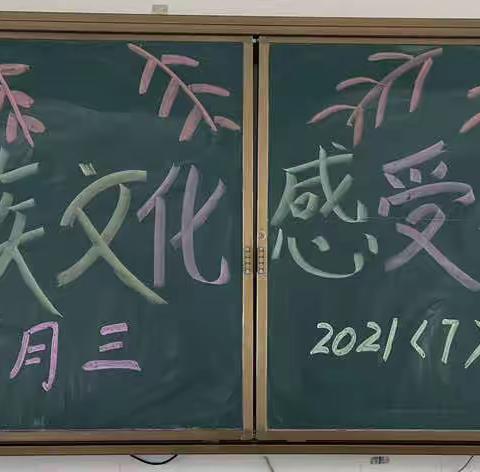 族文化 感受
月三 2021（7）